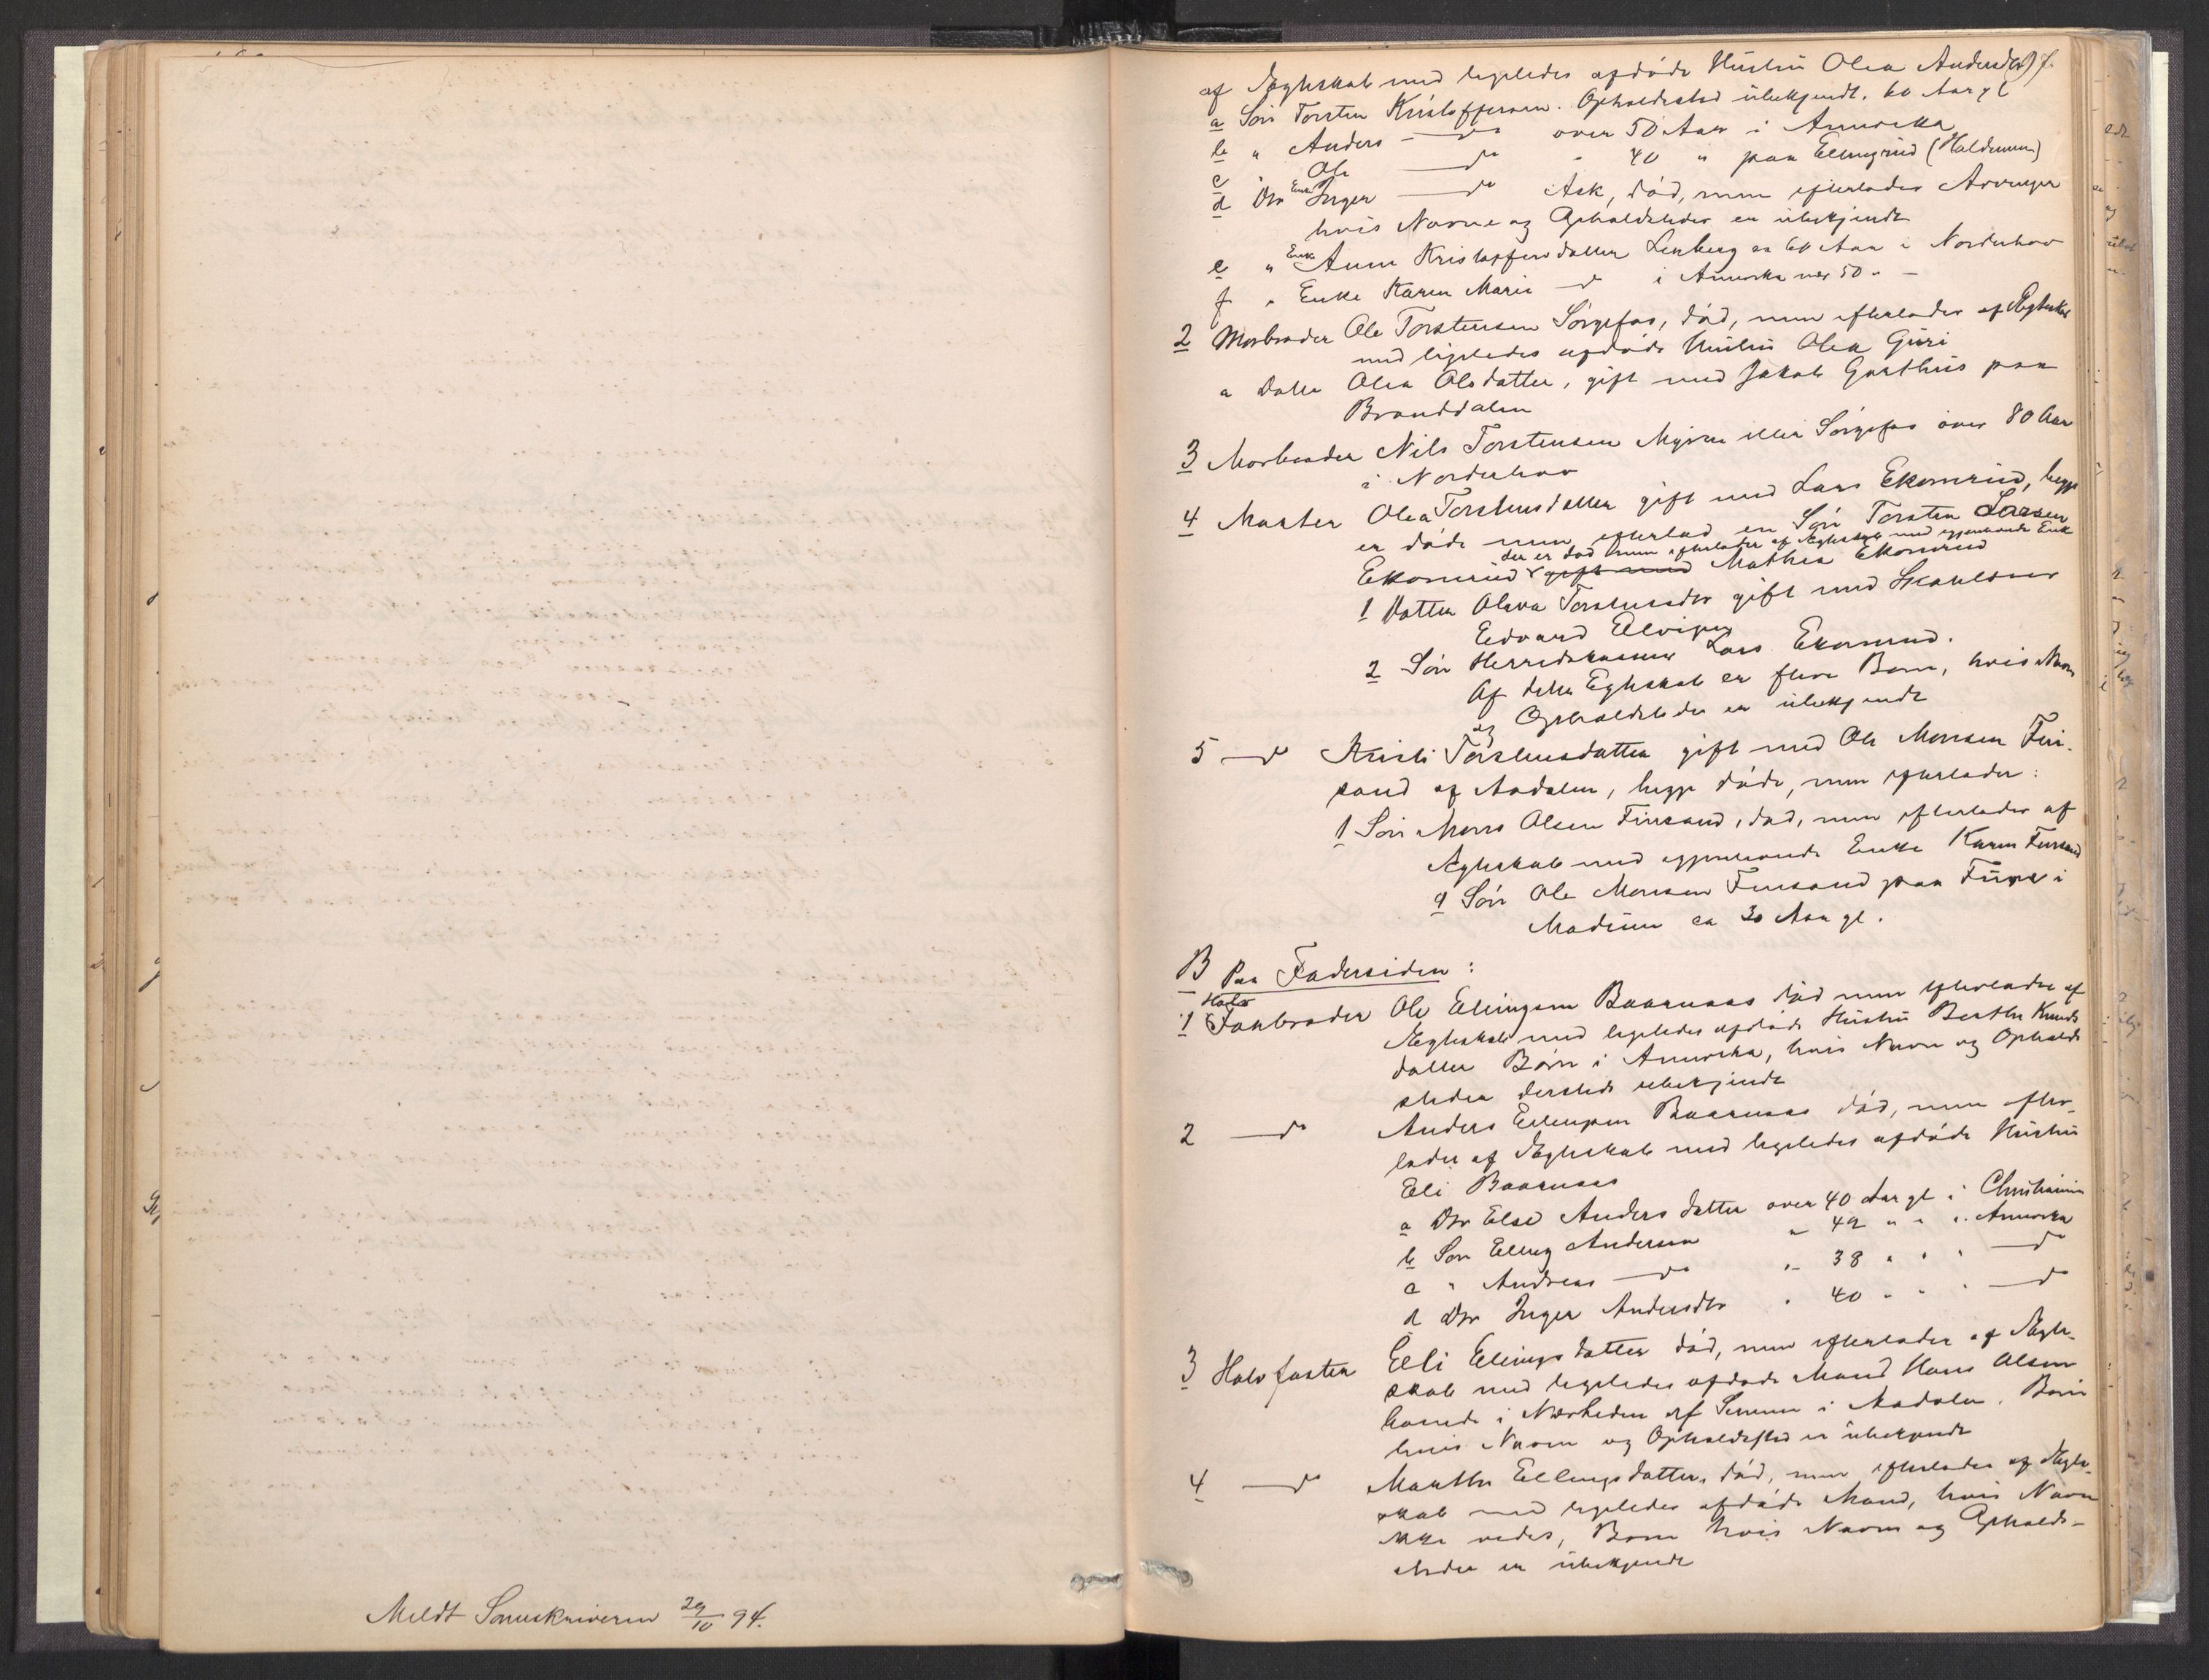 Meldt Sorenskriveren 29/10 94.
af Ægteskab med ligeledes afdøde Hustru Olea Andersd(tr)
a Søn Torsten Kristoffersen. Opholdssted ubekjendt. 60 Aar gl
b " Anders — do over 50 Aar i Amerika
c " Ole — do " 40 " paa Elling­rud (Haldrum)
d Dtr Enke Inger — do Ask, død, men efterlader Arvinger
hvis Navne og Opholdssteder er ubekjendt
e " Enke Anne Kristoffersdatter Lenberg ca 60 Aar i Norderhov
f " Enke Karen Marie — d i Amerika nær 50 " —
2 Morbroder Ole Torstensen Sørgefos, død, men efterlader af Ægteskab
med ligeledes afdøde Hustru Olea Guri
a Datter Olea Olsdatter, gift med Jakob Garthus paa
Branddalen
3 Morbroder Nils Torstensen Myren eller Sørgefos over 80 Aar
i Norderhov
4 Moster Olea Torstensdatter gift med Lars Ekornrud, begge
er døde men efterlod en Søn Torsten Larsen
der er død men efterlader af Ægteskab med gjenlevende Enke
Ekornrud gift med Mathea Ekornrud
1 Datter Oleva Torstensdtr gift med
Edvard
2 Søn Herredskasserer Lars Ekornrud.
Af dette Egteskab er flere Børn, hvis Navn
og Opholdssteder er ubekjendt
5 — d Kristi Torstensdatter gift med Ole Monsen Fin-
sand af Aadalen, begge døde, men efterlader:
1 Søn Mons Olsen Finsand, død, men efterlader af
Ægteskab med gjenlevende Enke Karen Finsand
a Søn Ole Monsen Finsand paa Fure i
Modum ca 30 Aar gl.
B Paa Fadersiden:
1 Halv Farbroder Ole Ellingsen Baarnaas død men efterlader af
Ægteskab med ligeledes afdøde Hustru Berthe Knuds
datter Børn i Amerika, hvis Navn og Opholds
steder dersteds ubekjendt
2 — do Anders Ellingsen Baarnaas død, men efter-
lader af Ægteskab med ligeledes afdøde Hustru
Eli Baarnaas
a Dtr Else Anders datter over 40 Aar gl i Christiania
b Søn Elling Andersen " 42 " " i Amerika
c " Andreas — do " 38 " " " — do
d Dtr Inger Andersdtr " 40 " " " — d
3 Halv faster Eli Ellings datter død, men efterlader af Ægte-
skab med ligeledes afdøde Mand Hans Olsen
boende i Nærheden af Semmen i Aadalen. Børn
hvis Navn og Opholdssted er ubekjendt
4 — d Marthe Ellingsdatter, død, men efterlader af Ægte-
skab med ligeledes afdøde Mand, hvis Navn
ikke vides, Børn hvis Navn og Opholds-
steder er ubekjendt